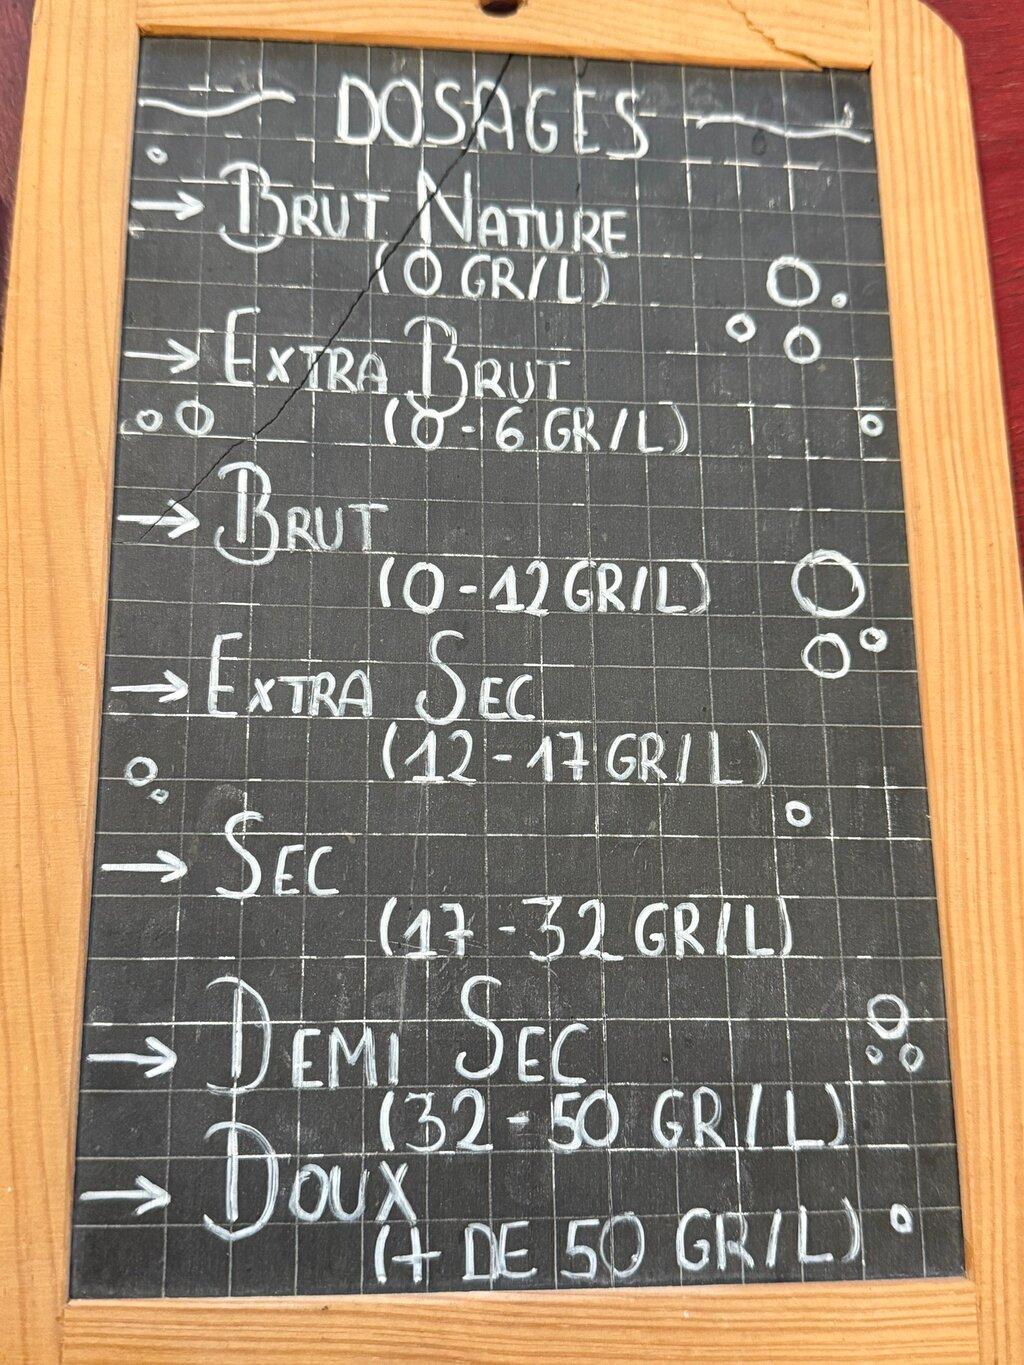 DOSAGES
→ BRUT NATURE
(0 GR/L)
→ EXTRA BRUT
(0-6 GR/L)
→ BRUT
(0-12 GR/L)
→ EXTRA SEC
(12-17 GR/L)
→ SEC
(17-32 GR/L)
→ DEMI SEC
(32-50 GR/L)
→ DOUX
(+ DE 50 GR/L)